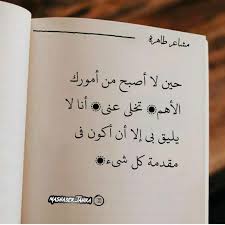 مشاعر طاهرة
حين لا أصبح من أمورك
الأهم تخلى عنى أنا لا
يليق بى إلا أن أكون فى
مقدمة كل شىء
MASHA3ER_TAHRA